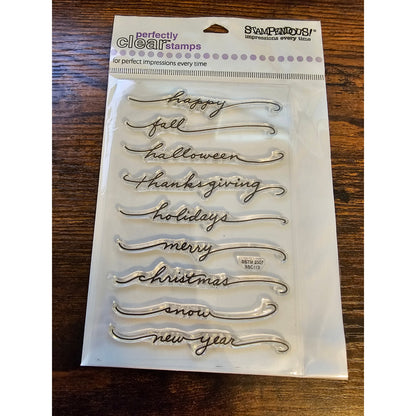 perfectly
clear stamps
for perfect impressions every time
STAMPENDOUS!
impressions every time
happy
fall
halloween
thanksgiving
holidays
merry
christmas
snow
new year